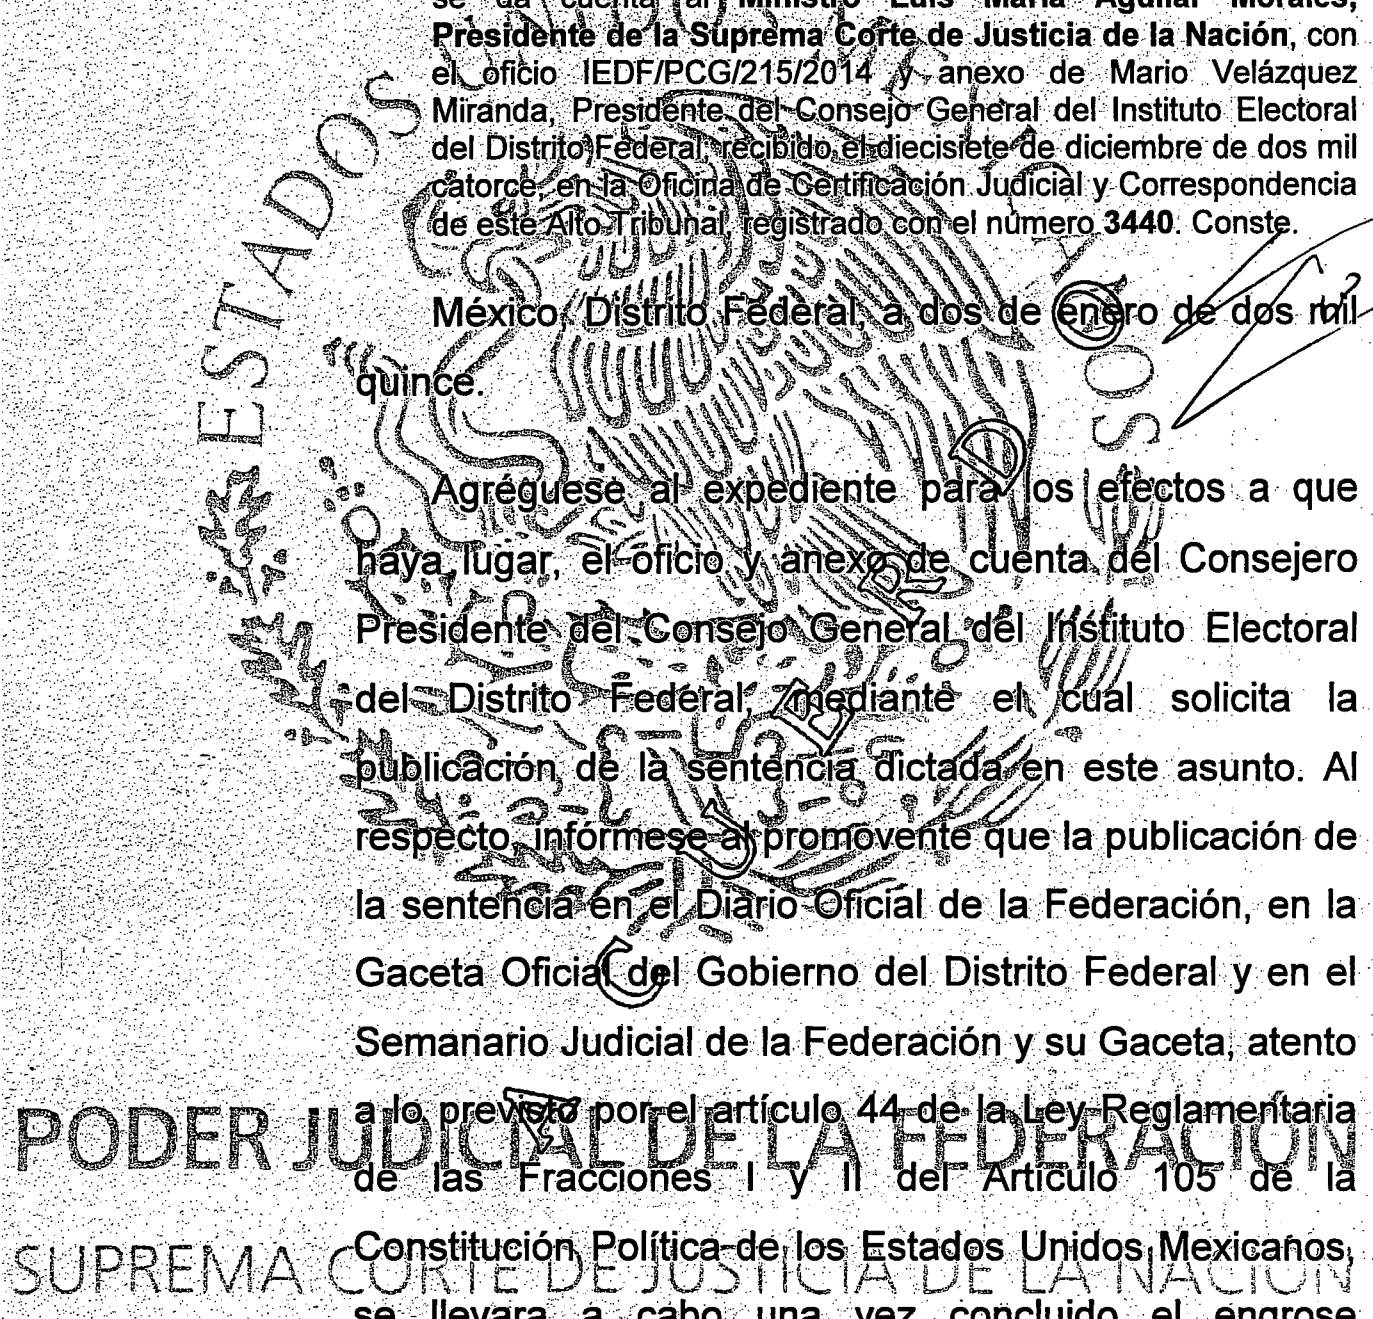 se da cuenta al Ministro Luis María Aguilar Morales,
Presidente de la Suprema Corte de Justicia de la Nación, con
el oficio IEDF/PCG/215/2014 y anexo de Mario Velázquez
Miranda, Presidente del Consejo General del Instituto Electoral
del Distrito Federal, recibido el diecisiete de diciembre de dos mil
catorce, en la Oficina de Certificación Judicial y Correspondencia
de este Alto Tribunal, registrado con el número 3440. Conste.
México, Distrito Federal, a dos de enero de dos mil
quince.
Agréguese al expediente para los efectos a que
haya lugar, el oficio y anexo de cuenta del Consejero
Presidente del Consejo General del Instituto Electoral
del Distrito Federal, mediante el cual solicita la
publicación de la sentencia dictada en este asunto. Al
respecto, infórmese al promovente que la publicación de
la sentencia en el Diario Oficial de la Federación, en la
Gaceta Oficial del Gobierno del Distrito Federal y en el
Semanario Judicial de la Federación y su Gaceta, atento
a lo previsto por el artículo 44 de la Ley Reglamentaria
de las Fracciones I y II del Artículo 105 de la
Constitución Política de los Estados Unidos Mexicanos,
se llevara a cabo una vez concluido el engrose
ESTADOS UNIDOS MEXICANOS
ACUERDO
PODER JUDICIAL DE LA FEDERACIÓN
SUPREMA CORTE DE JUSTICIA DE LA NACIÓN